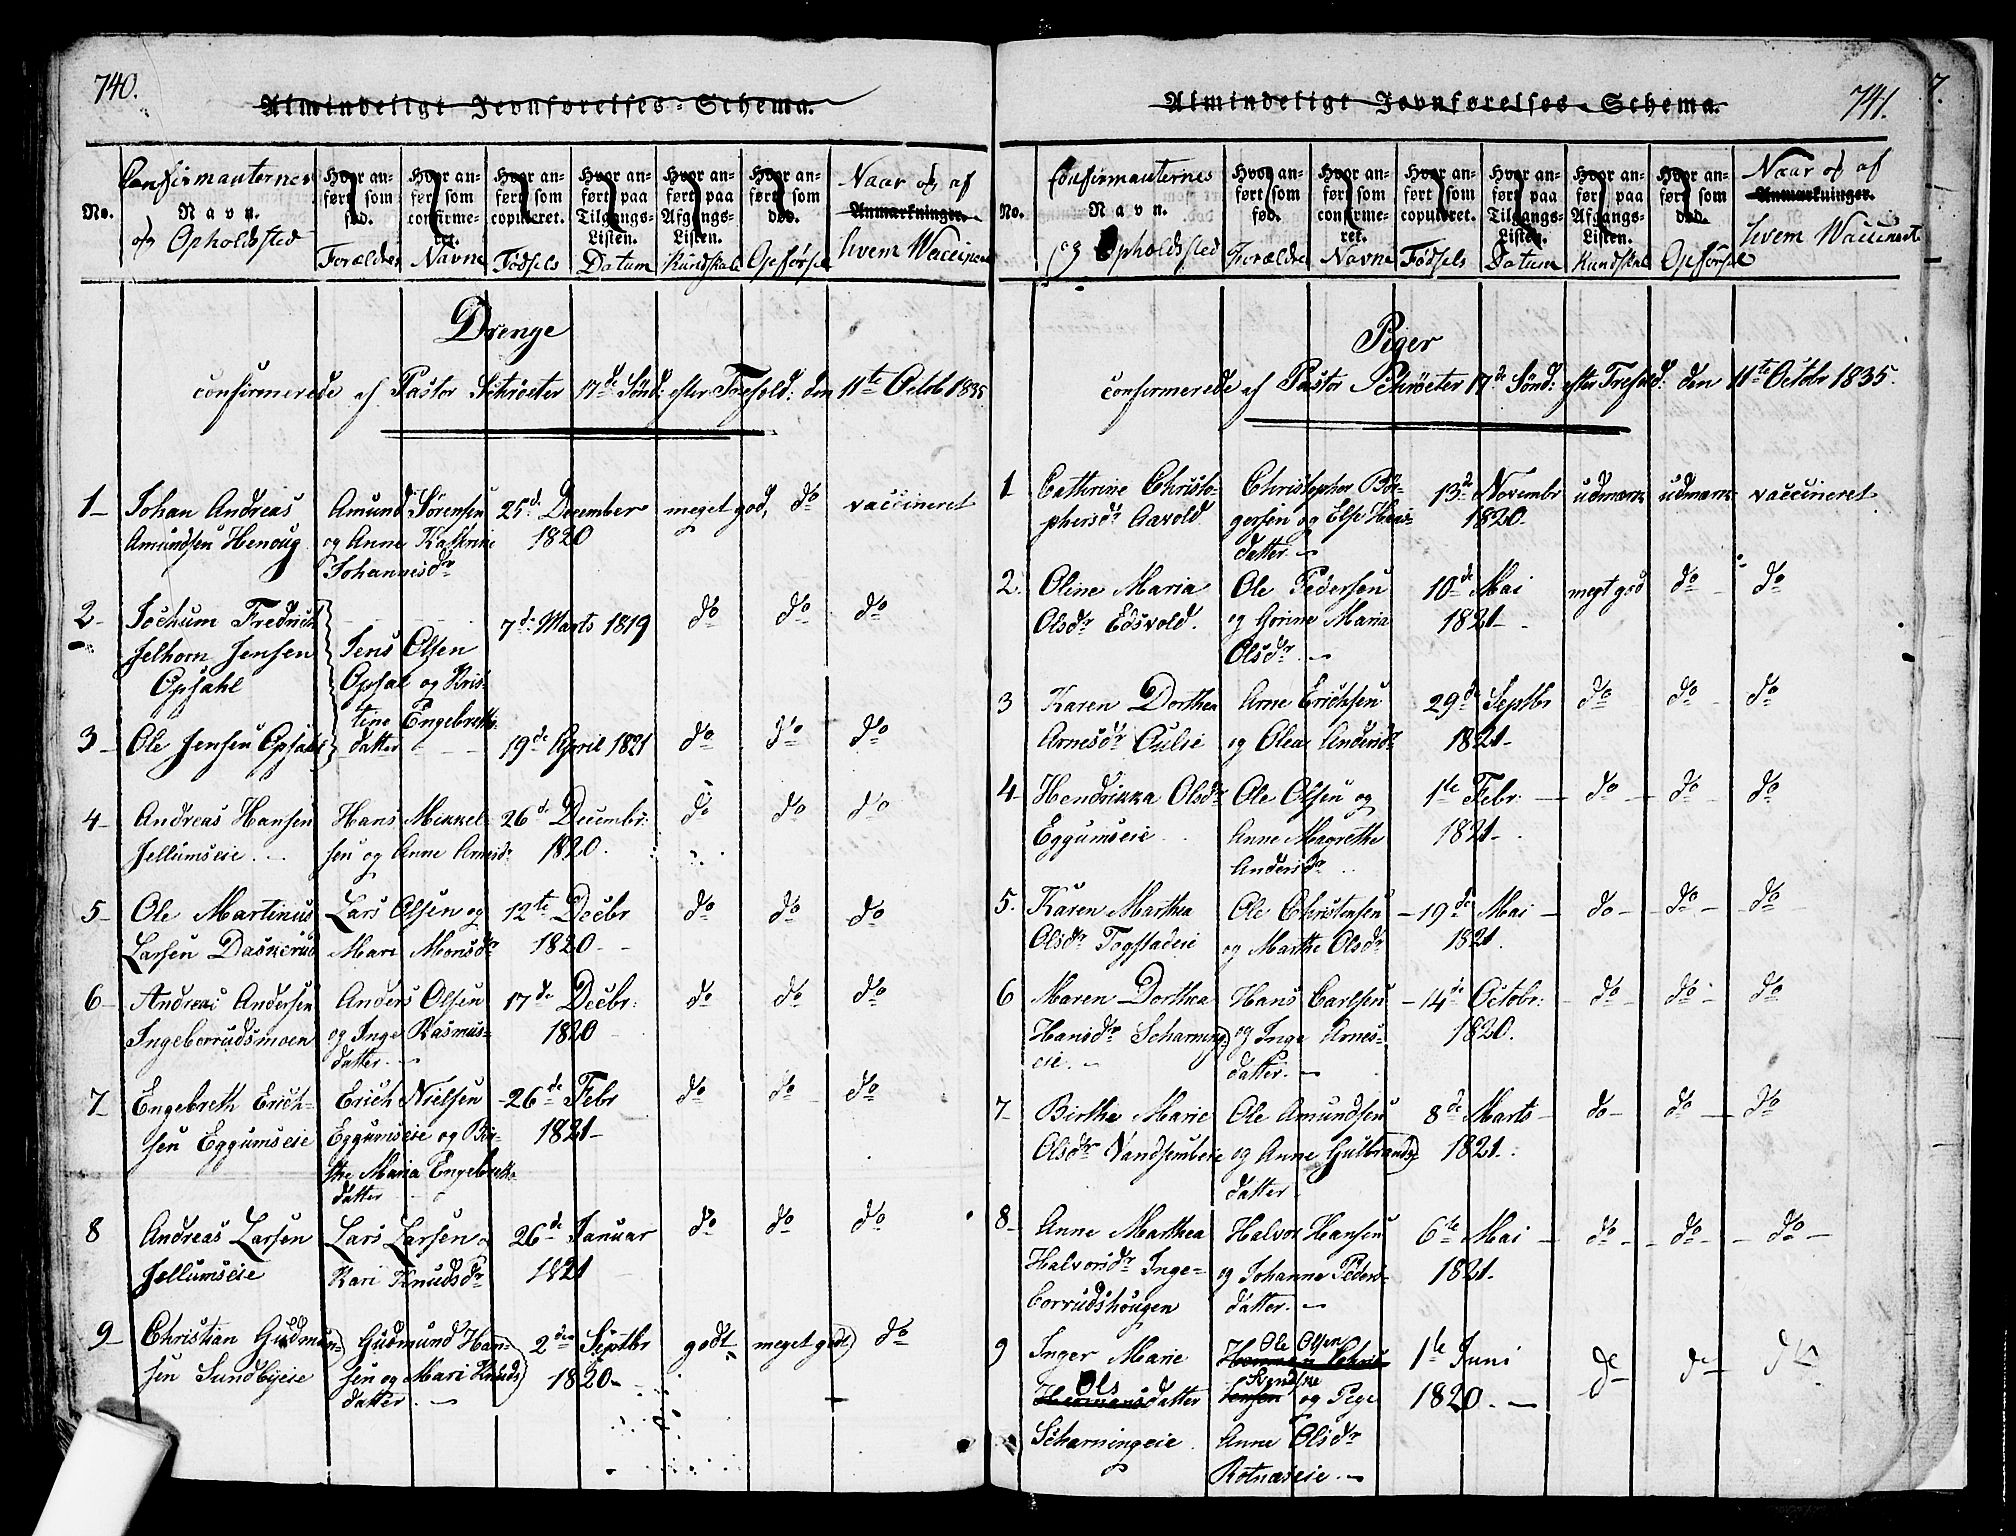 740.
Almindeligt Jevnførelses-Schema.
No.
Confirmanternes
Navn.
og Opholdsted
Hvor anført som fød.
Forældres
Hvor anført som confirmeret.
Navne
Hvor anført som copuleret.
Fødsels
Hvor anført paa Tilgangs-Listen.
Datum
Hvor anført paa Afgangs-Listen.
Kundskab
Hvor anført som død.
Opførsel
Naar og af
Anmærkninger.
hvem Vaccineret
Drenge
confirmerede af Pastor Schrøeter 17de Sønd: efter Trefold: den 11te Octob 1835
1 Johan Andreas Amund Sørensen 25de December meget god, do vaccineret
Amundsen Henoug og Anne Kathrine 1820
Johannesdr
2 Jochum Fredrich 7de Marts 1819 do do do
Jelhorn Jensen Jens Olsen
Opsahl Opsal og Kris-
tine Engebreths-
3 Ole Jensen Opsahl datter 19de April 1821 do do do
4 Andreas Hansen Hans Mikkel- 26de Decembr: do do do
Jellumseie sen og Anne Arnesdr 1820.
5 Ole Martinus Lars Olsen og 12te Decbr do do do
Larsen Daskerud Mari Monsdr 1820
6 Andreas Andersen Anders Olsen 17de Decbr: do do do
Ingeborrudsmoen og Inge Rasmus- 1820
datter
7 Engebreth Erich- Erich Nielsen 26de Febr do do do
sen Eggumseie Eggumseie og Bir- 1821
the Maria Engebreths-
datter
8 Andreas Larsen Lars Larsen og 26de Januar do do do
Jellumseie Kari Knudsdr 1821
9 Christian Gudmun- Gudmund Han- 2den Septbr godt meget godt do
sen Sundbyeie sen og Mari Knuds- 1820
datter.
741.
Almindeligt Jevnførelses-Schema.
No.
Confirmanternes
Navn.
og Opholdsted
Hvor anført som fød.
Forældre
Hvor anført som confirmeret.
Navne
Hvor anført som copuleret.
Fødsels
Hvor anført paa Tilgangs-Listen.
Datum
Hvor anført paa Afgangs-Listen.
Kundskab
Hvor anført som død.
Opførsel
Naar og af
Anmærkninger.
hvem Vaccineret
Piger
confirmerede af Pastor Schrøeter 17de Sønd: efter Trefold: den 11te Octobr 1835.
1 Cathrine Christo- Christopher Bør- 13de Novembr udmærk udmærk vaccineret
phersdr Aavold gersen og Else Hans- 1820
datter
2. Oline Maria Ole Pedersen 10de Mai megt god do do
Olsdr Edsvold. og Gorine Maria 1821
Olsdr
3 Karen Dorthea Arne Erichsen 29de Septbr do do do
Arnesdr Oulie og Olea Andersdr 1821
4 Hendrikka Olsdr Ole Olsen og 1te Febr: do do do
Eggumseie Anne Magrethe 1821
Andersdr
5. Karen Marthea Ole Christensen 19de Mai do do do
Olsdr Togstadeie og Marthe Olsdr 1821.
6 Maren Dorthea Hans Carlsen 14de Octobr: do do do
Hansdr Scharning- og Inge Arnes- 1820.
eie. datter.
7 Birthe Marie Ole Amundsen 8de Marts do do do
Olsdr Vandsembeie og Anne Gulbrands- 1821.
datter
8 Anne Marthea Halvor Hansen 6te Mai do do do
Halvorsdr Inge- og Johanne Peders- 1821.
borrudshougen datter.
9 Inger Marie Ole Olsen 1te Juni do do do
Ols
datter og Pige 1820.
Scharningeie. Anne Olsdr
Rotnæseie.